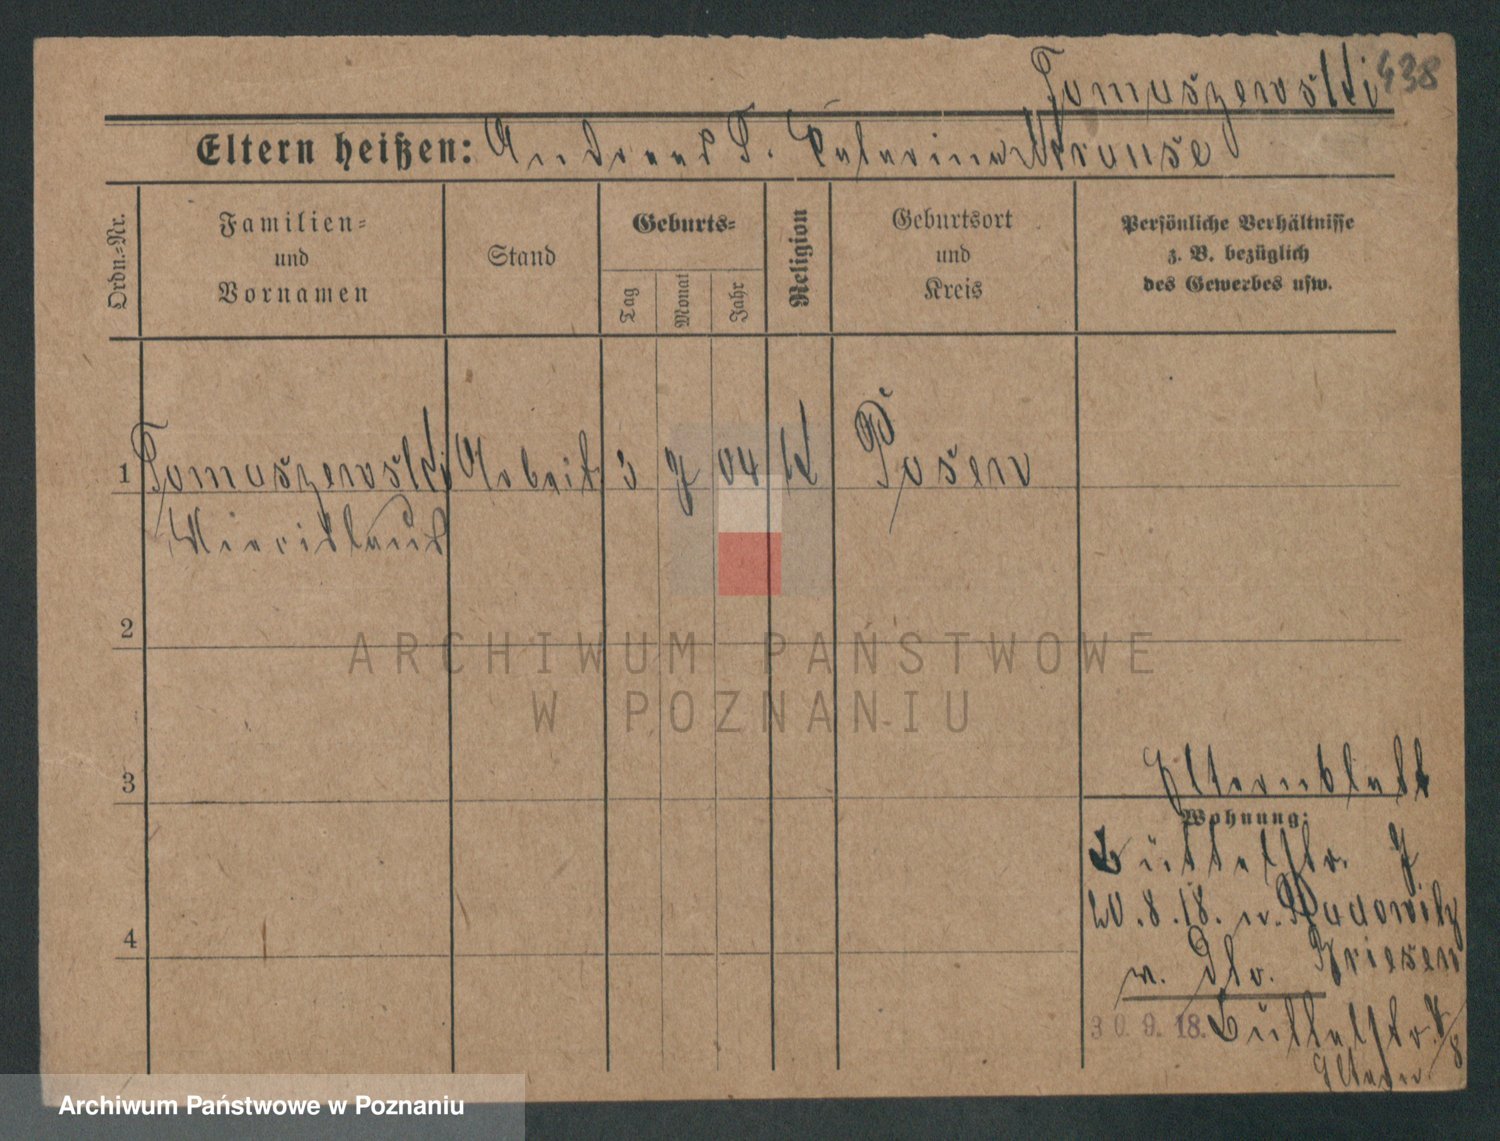 Tomaszewski 438
Eltern heißen: Andreas T. Katarina Krause
Ordn.-Nr.
Familien-
und
Vornamen
Stand
Geburts-
Tag
Monat
Jahr
Religion
Geburtsort
und
Kreis
Persönliche Verhältnisse
z. B. bezüglich
des Gewerbes usw.
1 Tomaszewski Arbeit. 3 04 K Posen
2
ARCHIWUM PAŃSTWOWE
W POZNANIU
3
Elternblatt
Wohnung:
Büttelstr.
20.8.18. n. Radowitz
Kr. Briesen
4
30.9.18. Büttelstr.
Eltern
Archiwum Państwowe w Poznaniu